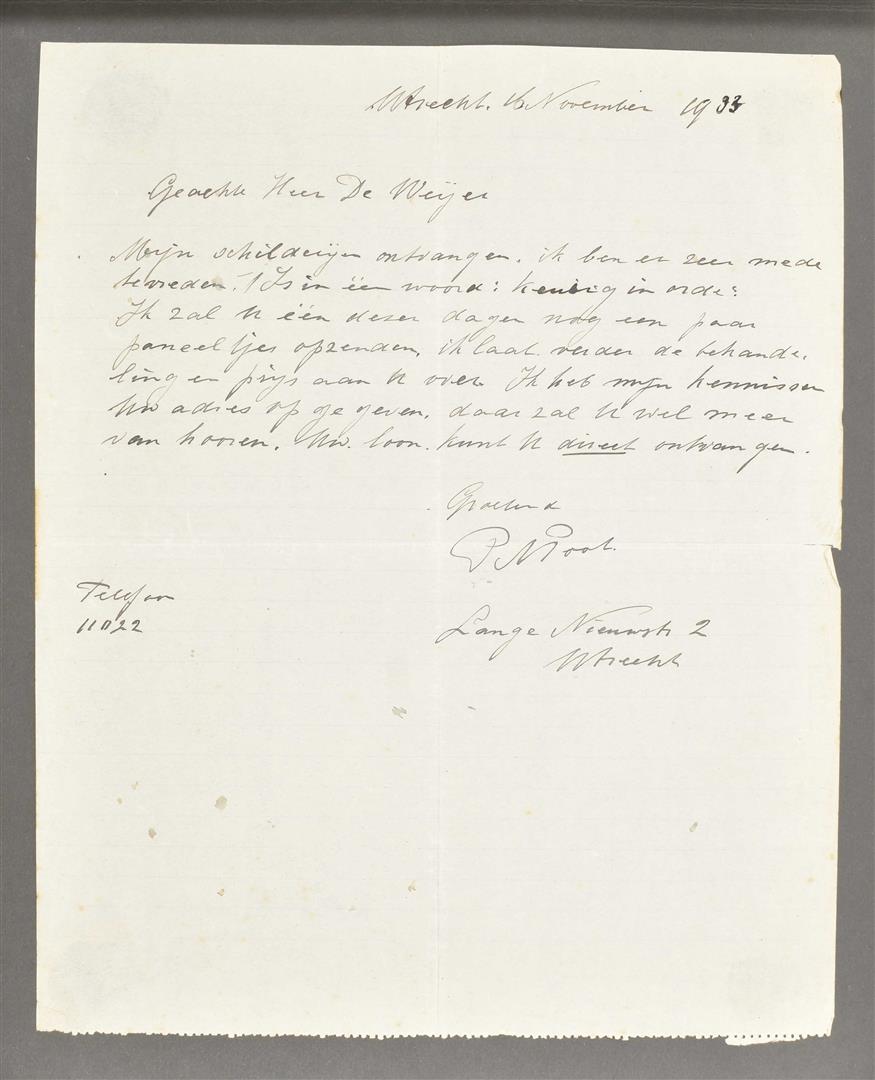 Utrecht. 16 November 1933
Geachte Heer De Weijer
Mijn schilderijen ontvangen. ik ben er zeer mede
tevreden. 't Is in één woord: keurig in orde:
Ik zal U één dezer dagen nog een paar
paneeltjes opzenden, ik laat verder de behande-
ling en prijs aan U over. Ik heb mijn kennissen
Uw adres op gegeven, daar zal U wel meer
van hooren. Uw. loon. kunt U direct ontvangen.
Groetend
P N Poot.
Telefoon
11022
Lange Nieuwstr 2
Utrecht